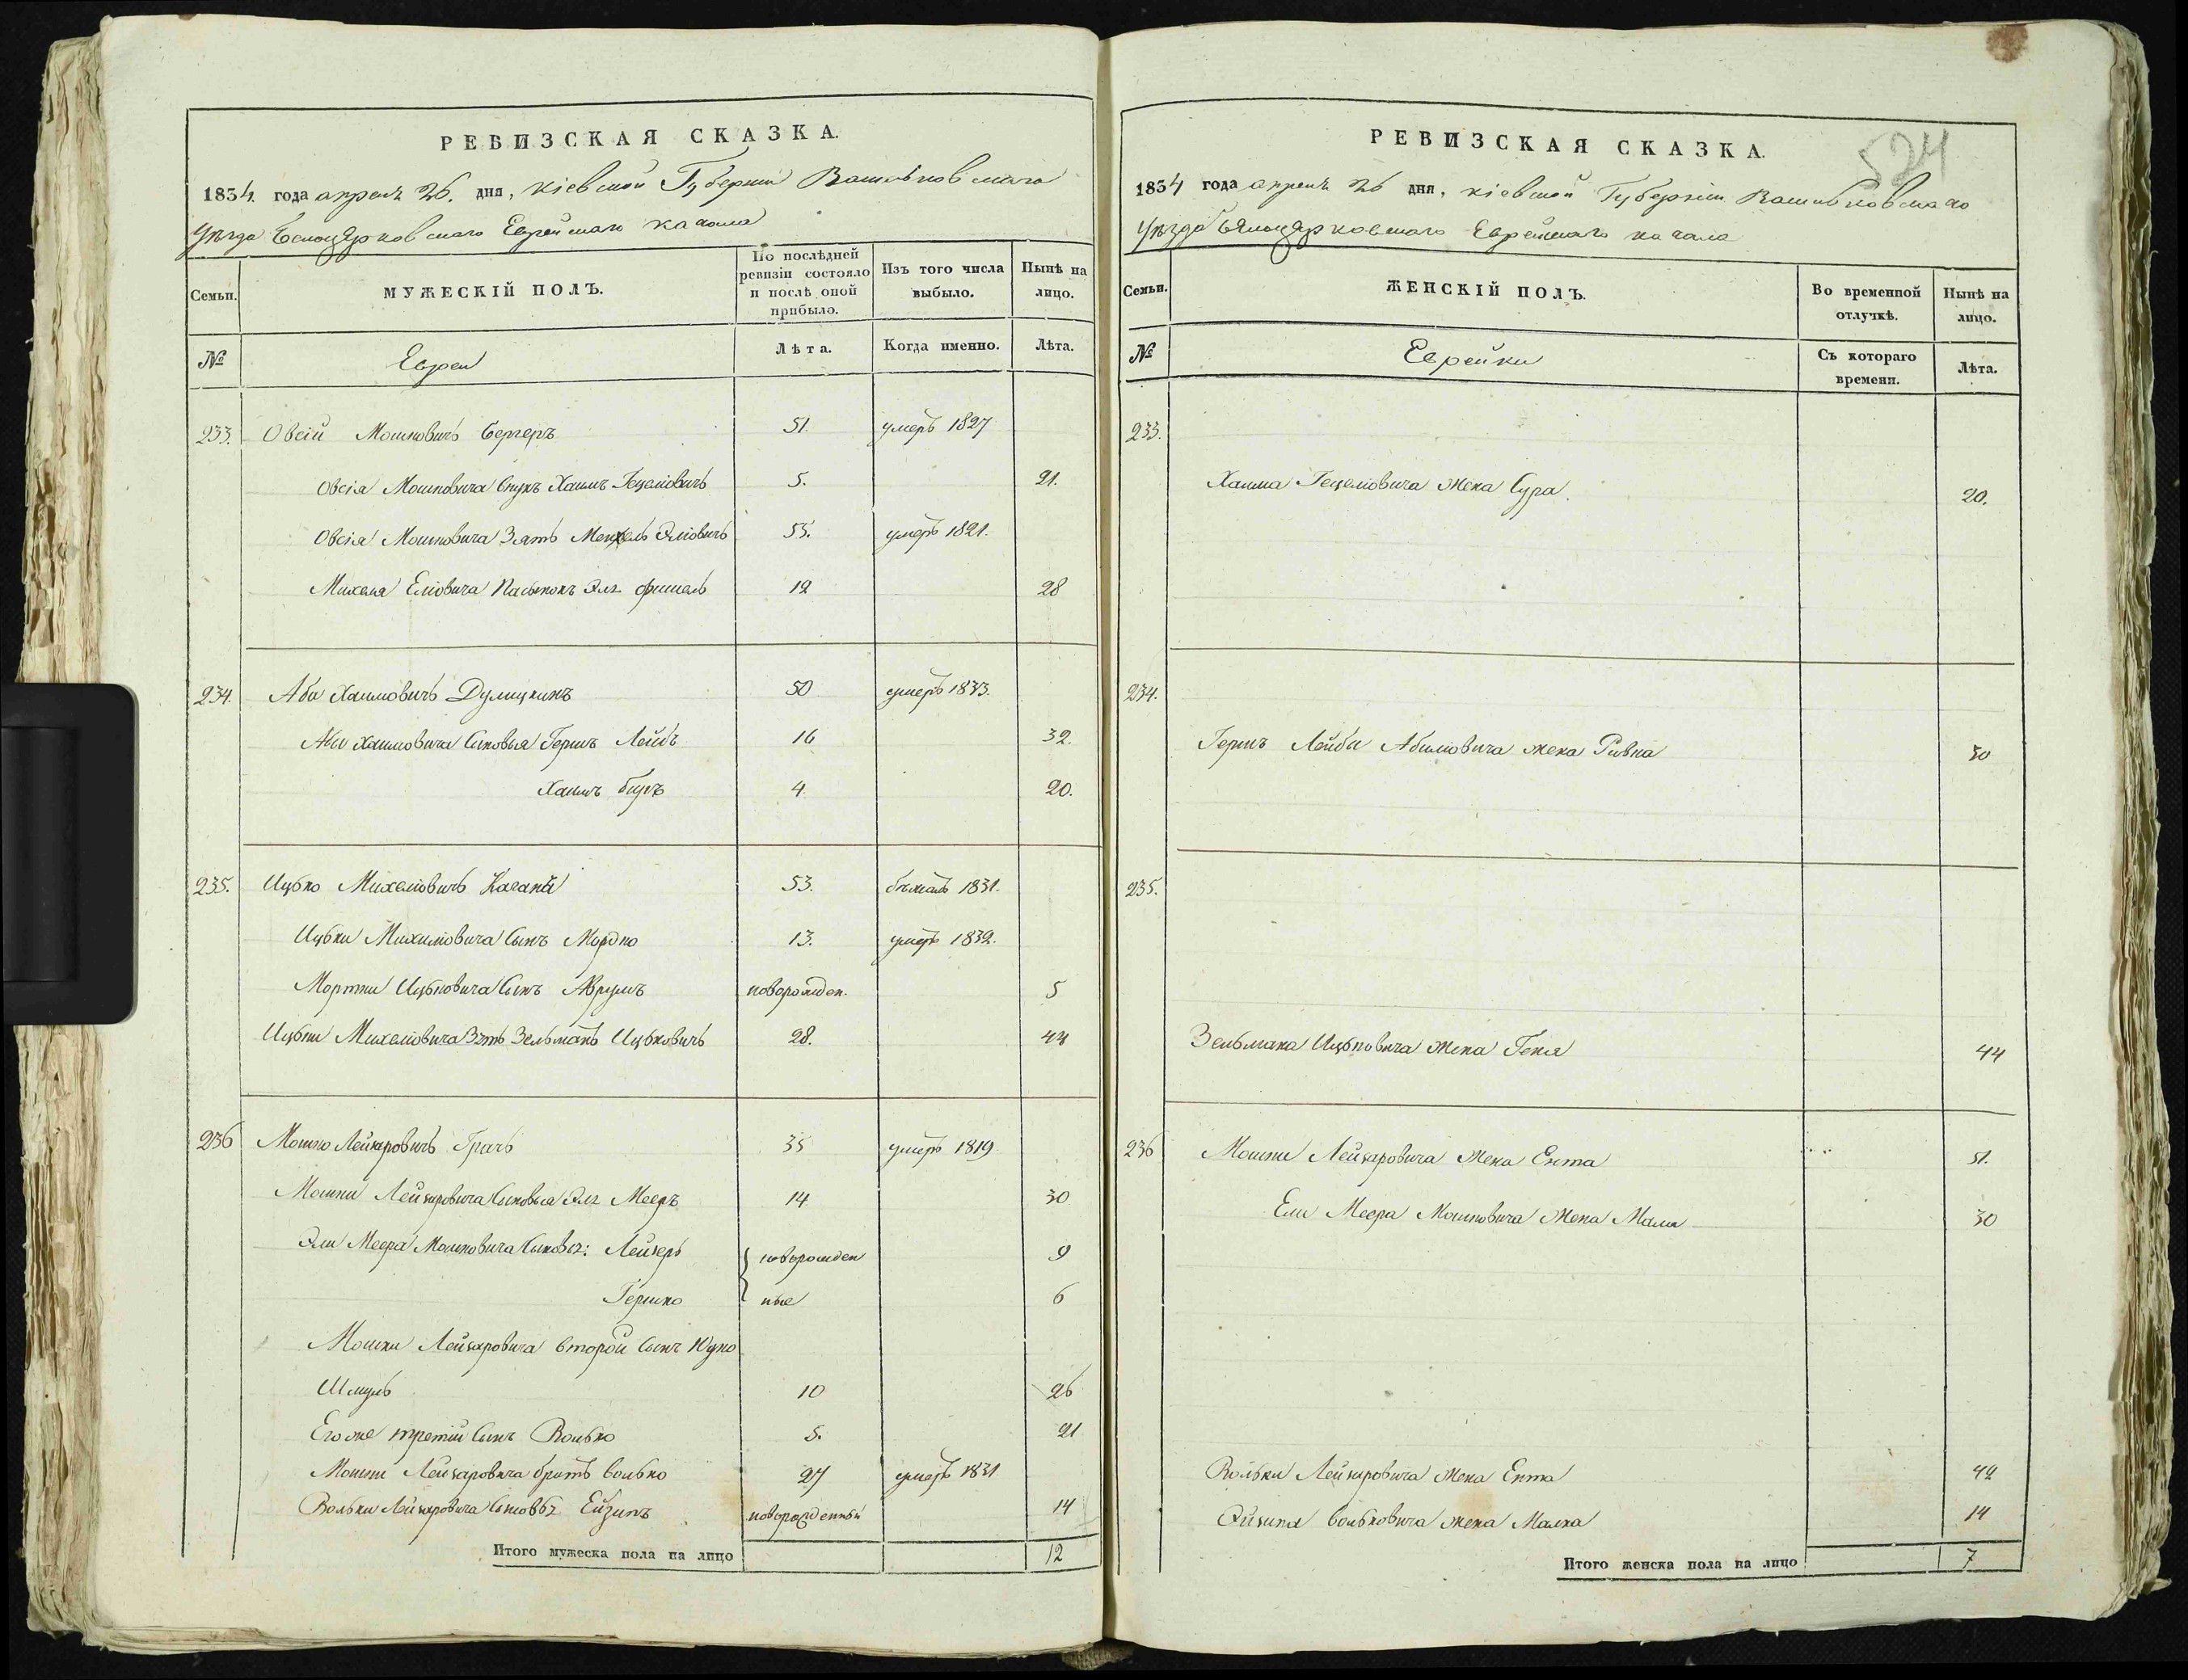 РЕВИЗСКАЯ СКАЗКА.
1834. года апреля 26. дня, Кіевской Губерніи Васильковскаго
Уѣзда Белоцерковскаго Еврейскаго кагала
Семьи.
МУЖЕСКІЙ ПОЛЪ.
По послѣдней ревизіи состояло и послѣ оной прибыло.
Изъ того числа выбыло.
Нынѣ на лицо.
№
Евреи
Лѣта.
Когда именно.
Лѣта.
233. Овсій Мошковичъ Бергеръ 51. умеръ 1827
Овсія Мошковича Внукъ Хаимъ Гецеліовичъ 5. 21.
Овсія Мошковича Зять Мехель Эліовичъ 55. умеръ 1821.
Михеля Еліовича Пасынокъ Эль Фишель 12 28
234. Аба Хаимовичъ Дулицкинъ 50 умеръ 1833.
Абы Хаимовича Сыновья Гершъ Лейбъ 16 32.
Хаимъ Беръ 4 20.
235. Ицко Михеліовичъ Каганъ 53. бѣжалъ 1831.
Ицки Михиліовича Сынъ Мордко 13. умеръ 1832.
Мортки Ицковича Сынъ Аврумъ новорожден. 5
Ицки Михеліовича Зять Зельманъ Ицковичъ 28. 44
236 Мошко Лейзаровичъ Грачъ 35 умеръ 1819
Мошки Лейзаровича Сыновья Эль Мееръ 14 30
Эли Меера Мошковича Сыновья: Лейзеръ новорожден 9
Гершко ные 6
Мошки Лейзаровича второй Сынъ Юдко
Шмуль 10 26
Егоже третій Сынъ Волько 5. 21
Мошки Лейзаровича братъ Волько 27 умеръ 1831
Вольки Лейзаровича Сыновья Ейзикъ новорожденный 14
Итого мужеска пола на лицо 12
524
РЕВИЗСКАЯ СКАЗКА.
1834 года апреля 26 дня, Кіевской Губерніи Васильковскаго
Уѣзда Бѣлоцерковскаго Еврейскаго кагала
Семьи.
ЖЕНСКІЙ ПОЛЪ.
Во временной отлучкѣ.
Нынѣ на лицо.
№
Еврейки
Съ котораго времени.
Лѣта.
233.
Хаима Гецеліовича жена Сура. 20.
234.
Гершъ Лейбы Абиліовича жена Ривка 30
235.
Зельмана Ицковича жена Геня 44
236 Мошки Лейзаровича жена Ента 51.
Ели Меера Мошковича жена Маля 30
Вольки Лейзаровича жена Ента 42
Эйзика Вольковича жена Малка 14
Итого женска пола на лицо 7